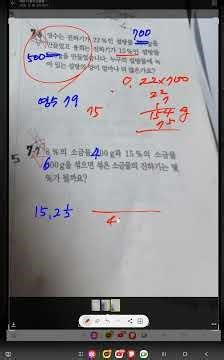 7-6 영수는 진하기가 22%인 설탕물 700
500 만들었고 송희는 진하기가 15%인 설탕물
만들었습니다. 누구의 설탕물에 녹
아 있는 설탕의 양이 얼마나 더 많은가요?
0.22×700
22
7
154 g
75
영수 79
75
5
7-7 8%의 소금물 400g과 15%의 소금물
600g을 섞으면 섞은 소금물의 진하기는 몇
%가 될까요?
6
4